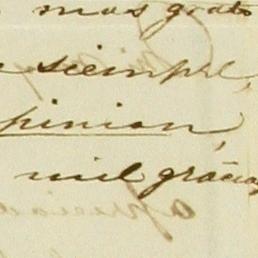 mas grato
siempre,
pinion,
mil gracias